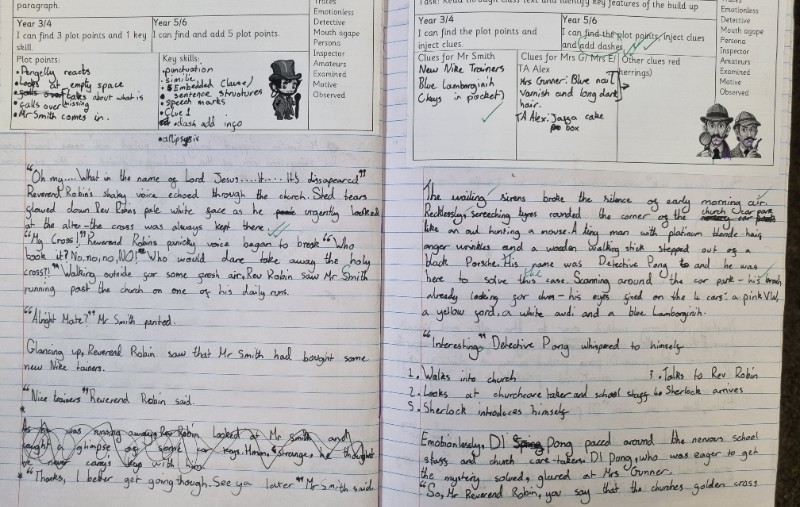 paragraph.
Year 3/4
I can find 3 plot points and 1 key skill.
Year 5/6
I can find and add 5 plot points.
Plot points:
• Pengelly reacts
• Looks at empty space
• talks about what is missing
• falls over
• Mr Smith comes in.
Key skills:
• punctuation
• Simile
• Embedded Clause/ sentence structures
• speech marks
• Clue 1
• dash add info
Emotionless
Detective
Mouth agape
Persona
Inspector
Amateurs
Examined
Motive
Observed
"Oh my....What in the name of Lord Jesus....It.... It's dissapeared"
Reverend Robin's shaky voice echoed through the church. Shed tears
glowed down Rev Robins pale white face as he urgently looked
at the alter-the cross was always kept there.
"My Cross!" Reverend Robins panicky voice began to break "Who
took it? No,no,no,NO!" Who would dare take away the holy
cross!?" Walking outside for some fresh air, Rev Robin saw Mr Smith
running past the church on one of his daily runs.
"Alright Mate?" Mr Smith panted.
Glancing up, Reverend Robin saw that Mr Smith had bought some
new Nike tainers.
"Nice trainers" Reverend Robin said.
"Thanks, I better get going though. See you later" Mr Smith said.
Task: Read through class text and identify key features of the build up
Year 3/4
I can find the plot points and inject clues.
Year 5/6
I can find the plot points, inject clues and add dashes.
Clues for Mr Smith
New Nike Trainers
Blue Lamborginih
(keys in pocket)
Clues for Mrs G/ Mrs E/ TA Alex
Mrs Gunner: Blue nail
Varnish and long dark
hair.
TA Alex: Jaffa cake
box
Other clues red herrings)
Emotionless
Detective
Mouth agape
Persona
Inspector
Amateurs
Examined
Motive
Observed
The wailing sirens broke the silence of early morning air.
Recklessly, screeching tyres rounded the corner of the church car park
like an owl hunting a mouse. A tiny man with platinum blonde hair,
anger wrinkles and a wooden walking stick stepped out of a
black Porsche. His name was Detective Pong and he was
here to solve this case. Scanning around the car park - his
already looking for clues - his eyes fixed on the 4 cars: a pink VW,
a yellow ford, a white audi and a blue Lamborginih.
"Interesting" Detective Pong whispered to himself
1. Walks into church 3. Talks to Rev Robin
2. Looks at churchcare taker and school stuff 4. Sherlock arrives
5. Sherlock introduces himself
Emotionlessly, DI Pong paced around the nervous school
stuff and church care-taker. DI Pong, who was eager to get
the mystery solved, glared at Mrs Gunner.
"So, Mr Reverend Robin, you say that the churches golden cross